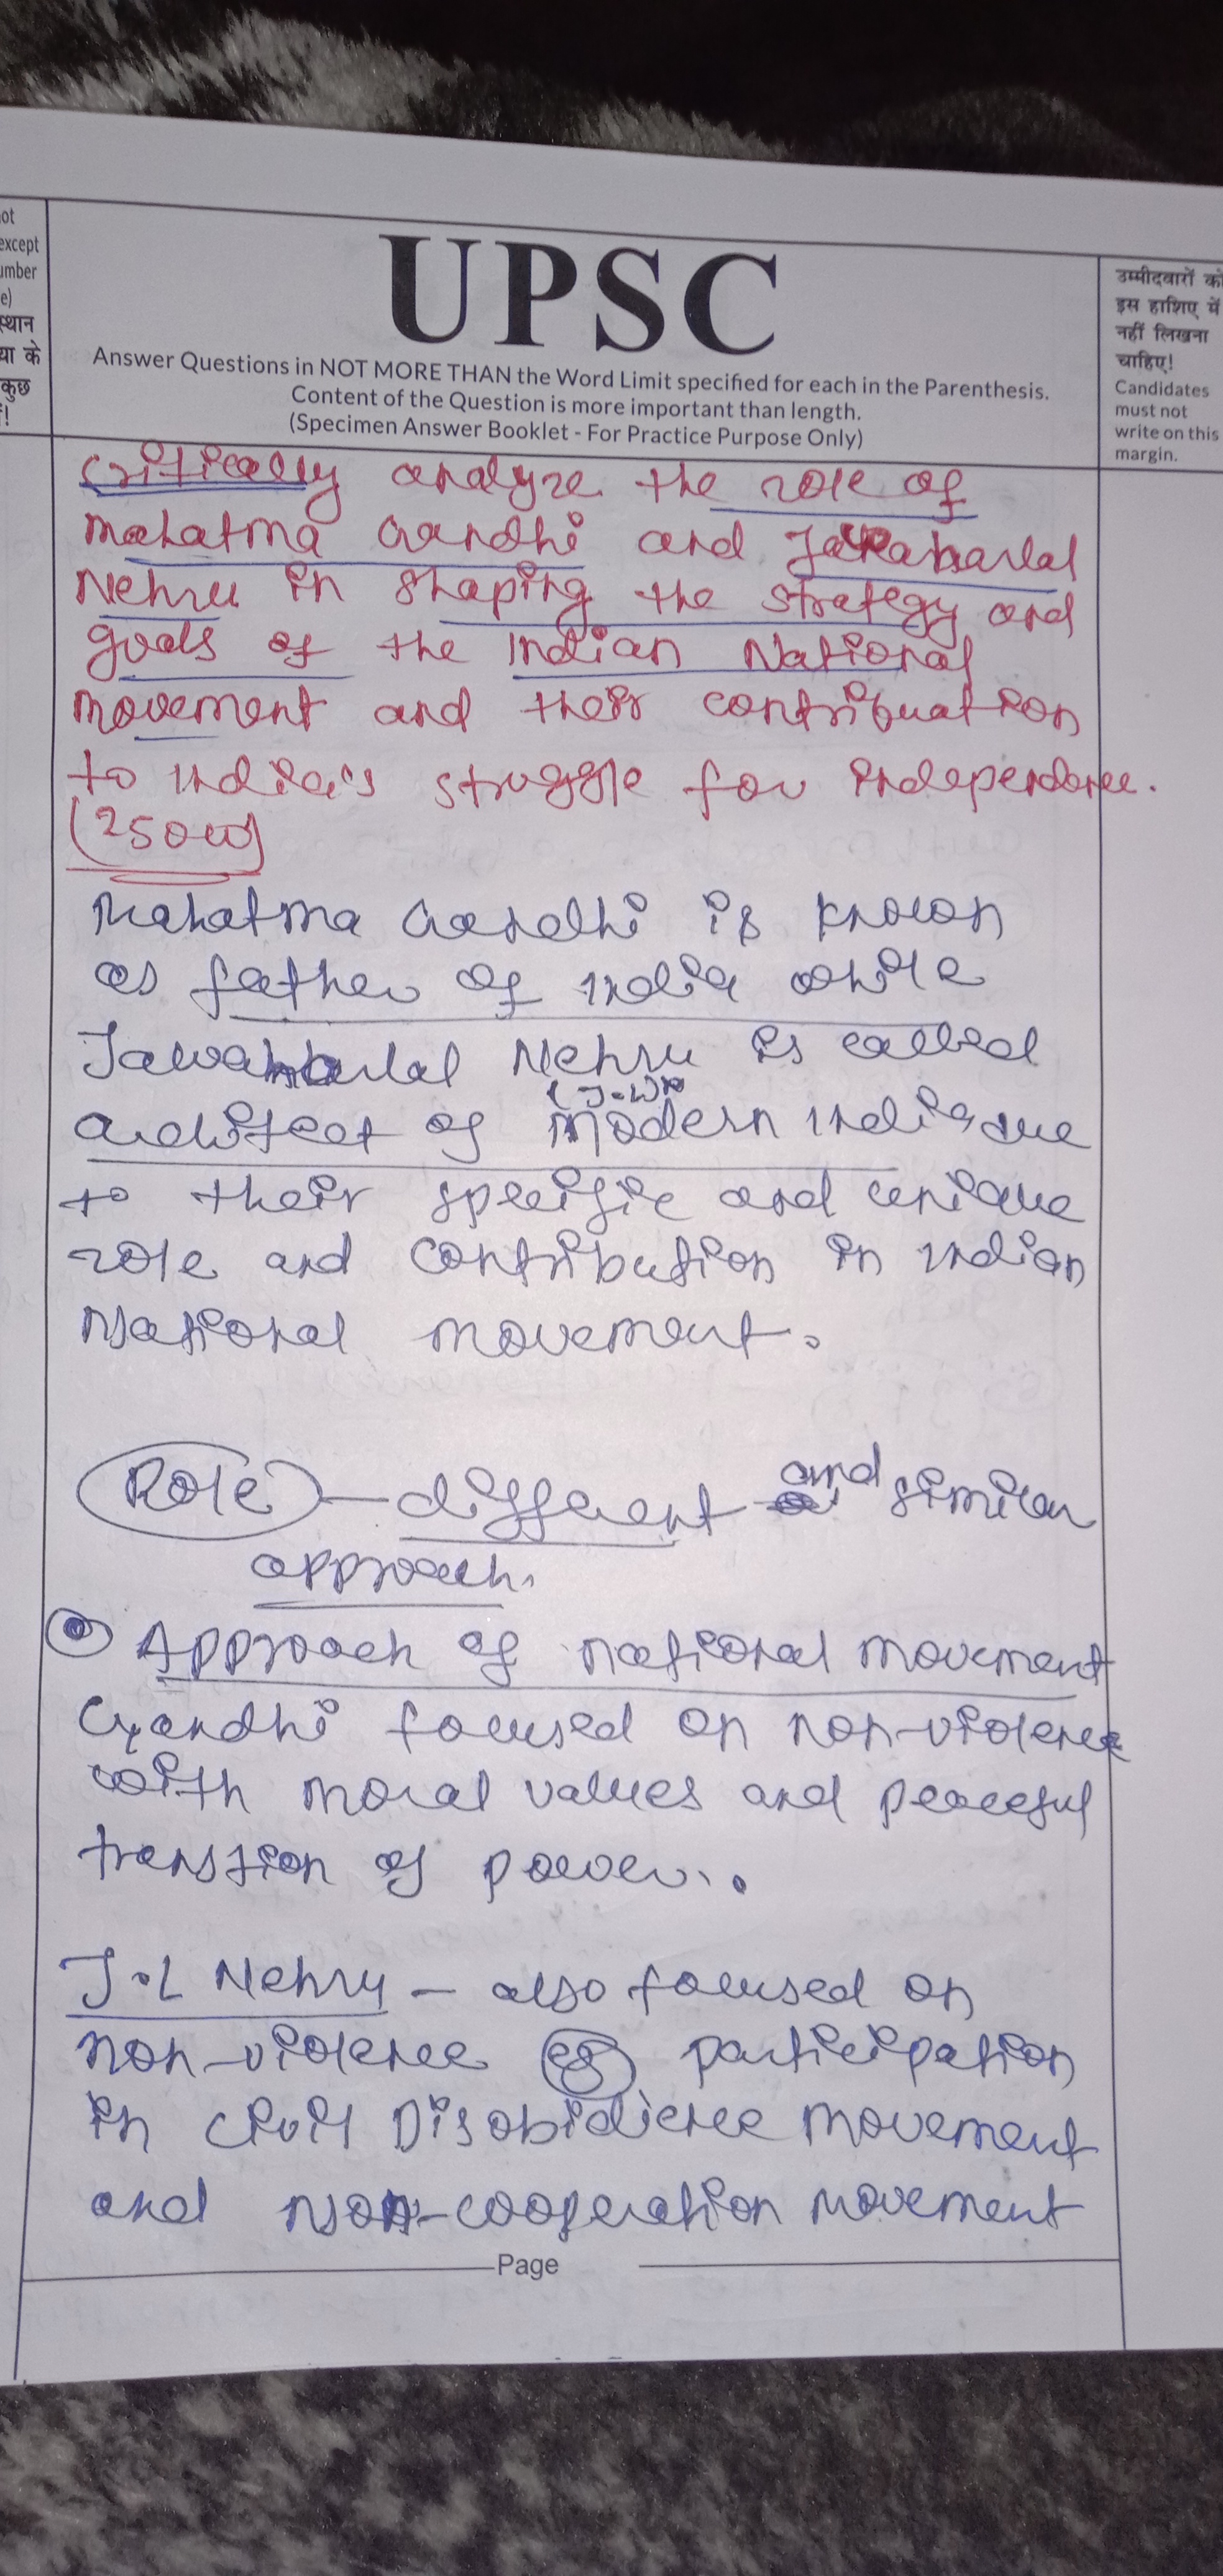 ot
except
umber
e)
स्थान
या के
कुछ
ं!
UPSC
Answer Questions in NOT MORE THAN the Word Limit specified for each in the Parenthesis.
Content of the Question is more important than length.
(Specimen Answer Booklet - For Practice Purpose Only)
उम्मीदवारों को
इस हाशिए में
नहीं लिखना
चाहिए!
Candidates
must not
write on this
margin.
Critically analyze the role of
Mahatma Gandhi and
Nehru in shaping the strategy and
goals of the Indian National
movement and their contribuation
to India's struggle for independence.
(250W)
Mahatma Gandhi is known
as father of India while
Nehru is called
architect of modern India due
to their specific and unique
role and contribution in Indian
National movement.
Role - different and similar
approach.
Approach of national movement
Gandhi focused on non-violence
with moral values and peaceful
transtion of power.
J.L Nehru - also focused on
non-violence eg participation
in Civil Disobidience movement
and Non-cooperation movement
Page